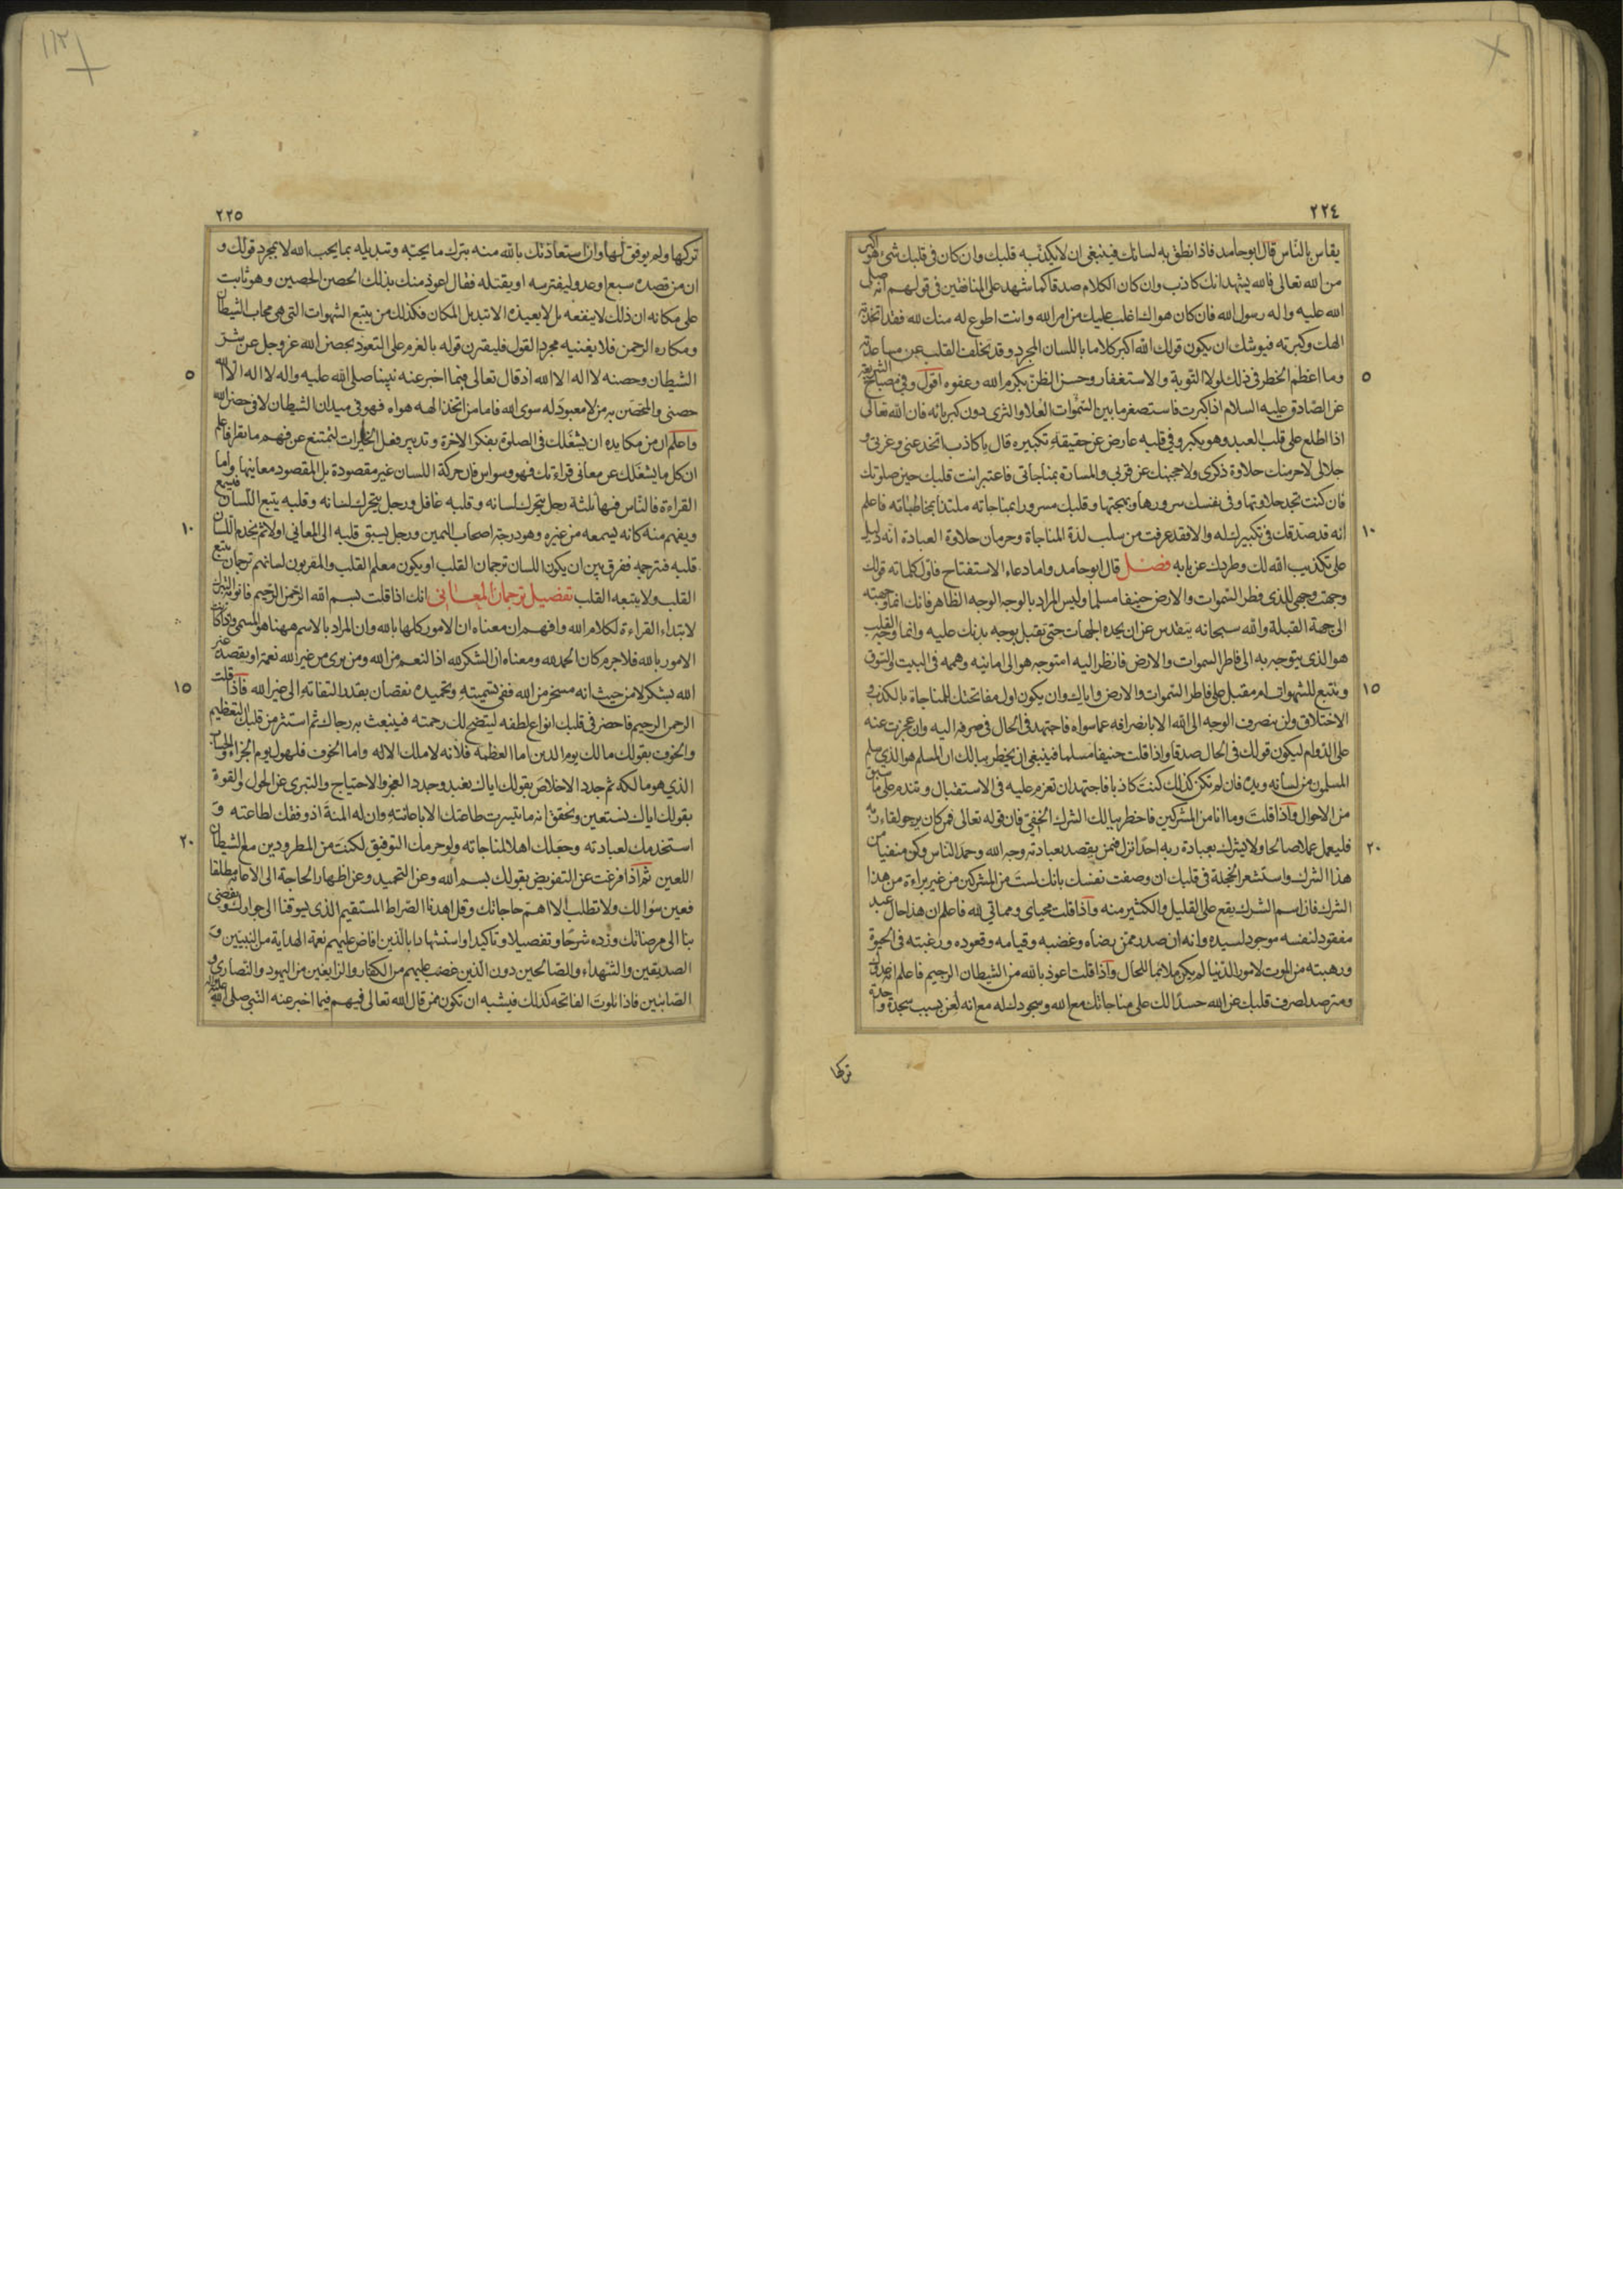 ٢٢٤
يقاس بالناس قال ابوحامد فاذا نطق به لسانك فينبغي ان لا يكذبه قلبك وان كان في قلبك شيء هو اكبر
من الله تعالى فالله يشهد انك كاذب وان كان الكلام صدقا كما شهد على المنافقين في قولهم انه صلى
الله عليه واله رسول الله فان كان هواك اغلب عليك من امر الله وانت اطوع له منك لله فقد اتخذته
الهك وكبرته فيوشك ان يكون قولك الله اكبر كلاما باللسان المجرد وقد تخلف القلب عن مساعدته
٥
وما اعظم الخطر في ذلك لولا التوبة والاستغفار وحسن الظن بكرم الله وعفوه اقول وفي مصباح الشريعة
عن الصادق عليه السلام اذا كبرت فاستصغر ما بين السموات العلا والثرى دون كبريائه فان الله تعالى
اذا اطلع على قلب العبد وهو يكبر وفي قلبه عارض عن حقيقة تكبيره قال يا كاذب اتخدعني وعزتي و
جلالي لاحرمنك حلاوة ذكري ولاحجبنك عن قربي والمسارة بمناجاتي فاعتبر انت قلبك حين صلوتك
فان كنت تجد حلاوتها وفي نفسك سرورها وبهجتها وقلبك مسرورا بمناجاته ملتذا بمخاطباته فاعلم
١٠
انه قد صدقك في تكبيرك له والا فقد عرفت من سلب لذة المناجاة وحرمان حلاوة العبادة انه دليل
على تكذيب الله لك وطردك عن بابه فصل قال ابوحامد واما دعاء الاستفتاح فاول كلماته قولك
وجهت وجهي للذي فطر السموات والارض حنيفا مسلما وليس المراد بالوجه الوجه الظاهر فانك انما وجهته
الى جهة القبلة والله سبحانه يتقدس عن ان يحده الجهات حتى تقبل بوجه بدنك عليه وانما وجه القلب
هو الذي يتوجه به الى فاطر السموات والارض فانظر اليه امتوجه هو الى امانيه وهمه في البيت والسوق
١٥
ومتبع للشهوات ام مقبل على فاطر السموات والارض واياك وان يكون اول مفاتحتك للمناجاة بالكذب و
الاختلاق ولن ينصرف الوجه الى الله الا بانصرافه عما سواه فاجتهد في الحال في صرفه اليه وان عجزت عنه
على الدوام ليكون قولك في الحال صدقا واذا قلت حنيفا مسلما فينبغي ان يخطر ببالك ان المسلم هو الذي سلم
المسلمون من لسانه ويده فان لم تكن كذلك كنت كاذبا فاجتهد ان تعزم عليه في الاستقبال وتندم على ما سبق
من الاحوال واذا قلت وما انا من المشركين فاخطر ببالك الشرك الخفي فان قوله تعالى فمن كان يرجو لقاء ربه
٢٠
فليعمل عملا صالحا ولا يشرك بعبادة ربه احدا نزل فيمن يقصد بعبادته وجه الله وحمد الناس وكن منفيا من
هذا الشرك واستشعر الخجلة في قلبك ان وصفت نفسك بانك لست من المشركين من غير براءة من هذا
الشرك فان اسم الشرك يقع على القليل والكثير منه واذا قلت محياي ومماتي لله فاعلم ان هذا حال عبد
مفقود لنفسه موجود لسيده وانه ان صدر ممن رضاه وغضبه وقيامه وقعوده ورغبته في الحيوة
ورهبته من الموت لامور الدنيا لم يكن ملائما للحال واذا قلت اعوذ بالله من الشيطان الرجيم فاعلم انه عدوك
ومترصد لصرف قلبك عن الله حسدا لك على مناجاتك مع الله وسجودك له مع انه لعن بسبب سجدة واحدة
تركها
٢٢٥
تركها ولم يوفق لها وان استعاذتك بالله منه بترك ما يحبه وتبديله بما يحب الله لا بمجرد قولك و
ان من قصده سبع او عدو ليفترسه او يقتله فقال اعوذ منك بذلك الحصن الحصين وهو ثابت
على مكانه ان ذلك لا ينفعه بل لا يعيذه الا تبديل المكان فكذلك من يتبع الشهوات التي هي محاب الشيطان
ومكاره الرحمن فلا يغنيه مجرد القول فليقترن قوله بالعزم على التعوذ بحصن الله عز وجل عن شر
٥
الشيطان وحصنه لا اله الا الله اذ قال تعالى فيما اخبر عنه نبينا صلى الله عليه واله لا اله الا الله
حصني والمتحصن به من لا معبود له سوى الله فاما من اتخذ الهه هواه فهو في ميدان الشيطان لا في حصن الله
واعلم ان من مكايده ان يشغلك في الصلوة بفكر الاخرة وتدبير فعل الخيرات لتمتنع عن فهم ما تقرا فاعلم
ان كل ما يشغلك عن معاني قراءتك فهو وسواس فان حركة اللسان غير مقصودة بل المقصود معانيها واما
القراءة فالناس فيها ثلثة رجل يتحرك لسانه وقلبه غافل ورجل يتحرك لسانه وقلبه يتبع اللسان فيسمع
١٠
ويفهم منه كانه يسمعه من غيره وهو درجة اصحاب اليمين ورجل يسبق قلبه الى المعاني اولا ثم يخدم اللسان
قلبه فيترجمه ففرق بين ان يكون اللسان ترجمان القلب او يكون معلم القلب والمقربون لسانهم ترجمان يتبع
القلب ولا يتبعه القلب تفصيل ترجمان المعاني انك اذا قلت بسم الله الرحمن الرحيم فانو به التبرك
لابتداء القراءة لكلام الله وافهم ان معناه ان الامور كلها بالله وان المراد بالاسم ههنا هو المسمى واذا كانت
الامور بالله فلا جرم كان الحمد لله ومعناه ان الشكر لله اذ النعم من الله ومن يرى من غير الله نعمة او يقصد غير
١٥
الله بشكر لا من حيث انه مسخر من الله ففي تسميته وتحميده نقصان بقدر التفاته الى غير الله فاذا قلت
الرحمن الرحيم فاحضر في قلبك انواع لطفه ليتضح لك رحمته فينبعث به رجاك ثم استثر من قلبك التعظيم
والخوف بقولك مالك يوم الدين اما العظمة فلانه لا ملك الا له واما الخوف فلهول يوم الجزاء والحساب
الذي هو مالكه ثم جدد الاخلاص بقولك اياك نعبد وجدد العجز والاحتياج والتبري عن الحول والقوة
بقولك اياك نستعين وتحقق انه ما تيسرت طاعتك الا باعانته وان له المنة اذ وفقك لطاعته و
٢٠
استخدمك لعبادته وجعلك اهلا لمناجاته ولو حرمك التوفيق لكنت من المطرودين مع الشيطان
اللعين ثم اذا فرغت عن التفويض بقولك بسم الله وعن التحميد وعن اظهار الحاجة الى الاعانة مطلقا
فعين سؤالك ولا تطلب الا اهم حاجاتك وقل اهدنا الصراط المستقيم الذي يسوقنا الى جوارك ويفضي
بنا الى مرضاتك وزده شرحا وتفصيلا وتاكيدا واستشهادا بالذين افاض عليهم نعمة الهداية من النبيين و
الصديقين والشهداء والصالحين دون الذين غضب عليهم من الكفار والزايغين من اليهود والنصارى و
الصابئين فاذا تلوت الفاتحه كذلك فيشبه ان تكون ممن قال الله تعالى فيهم فيما اخبر عنه النبي صلى الله عليه واله